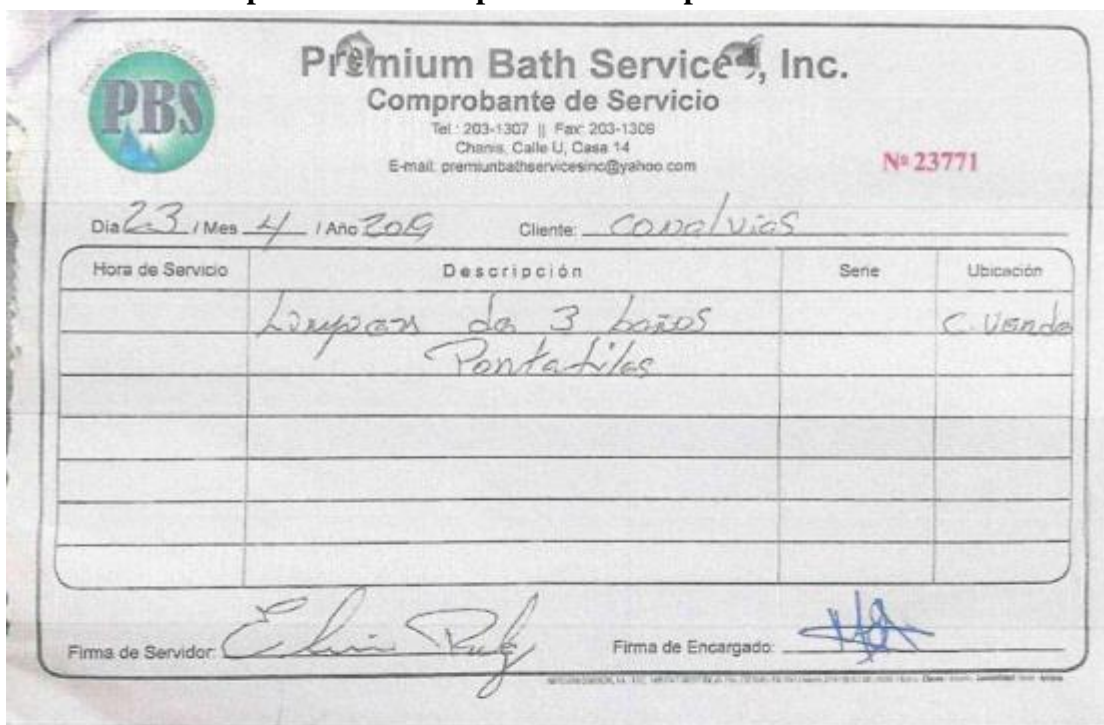 PBS
Premium Bath Services, Inc.
Comprobante de Servicio
Tel.: 203-1307 || Fax: 203-1308
Chanis, Calle U, Casa 14
E-mail: premiunbathservicesinc@yahoo.com
Nº 23771
Dia 23 / Mes 4 / Año 2009 Cliente: Conalvias
Hora de Servicio Descripción Serie Ubicación
de 3 baños C. Verde
Portatiles
Firma de Servidor: Firma de Encargado: